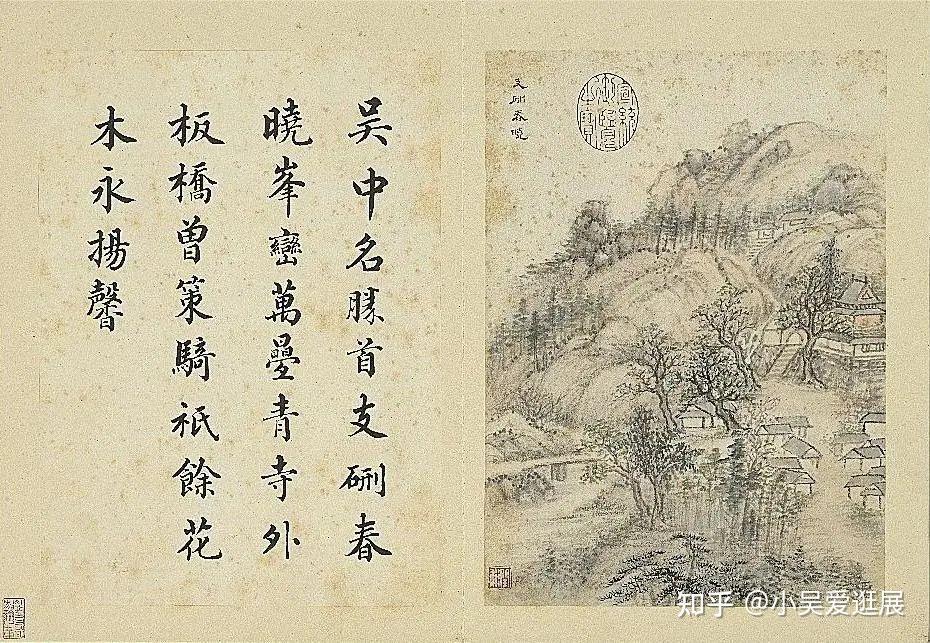 吴中名勝首支硎春
曉峯巒萬疊青寺外
板橋曾策騎祇餘花
木永揚馨
支硎春曉
宣統御覽之寶
知乎 @小吴爱逛展